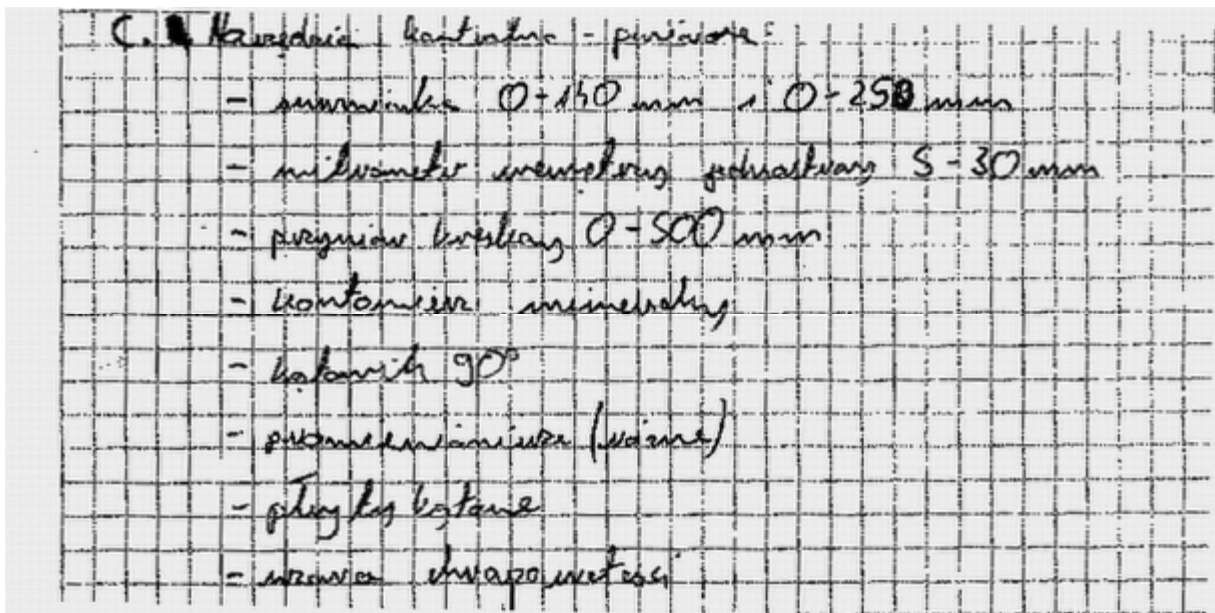 C. Narzędzia kontrolno - pomiarowe:
- suwmiarka 0-140 mm i 0-250 mm
- mikrometr wewnętrzny jednostronny 5-30 mm
- przymiar kreskowy 0-500 mm
- kątomierz uniwersalny
- kątownik 90°
- promieniomierze (różne)
- płytki kątowe
- wzorce chropowatości